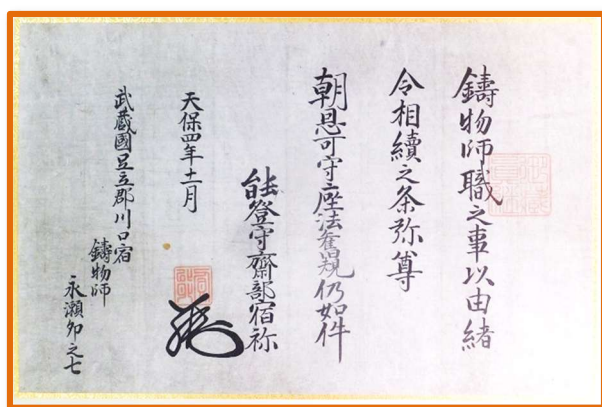 鑄物師職之事以由緒
令相續之条弥尊
朝恩可守座法舊規仍如件
能登守齋部宿祢
天保四年十一月
武蔵國足立郡川口宿
鑄物師
永瀬卯之七